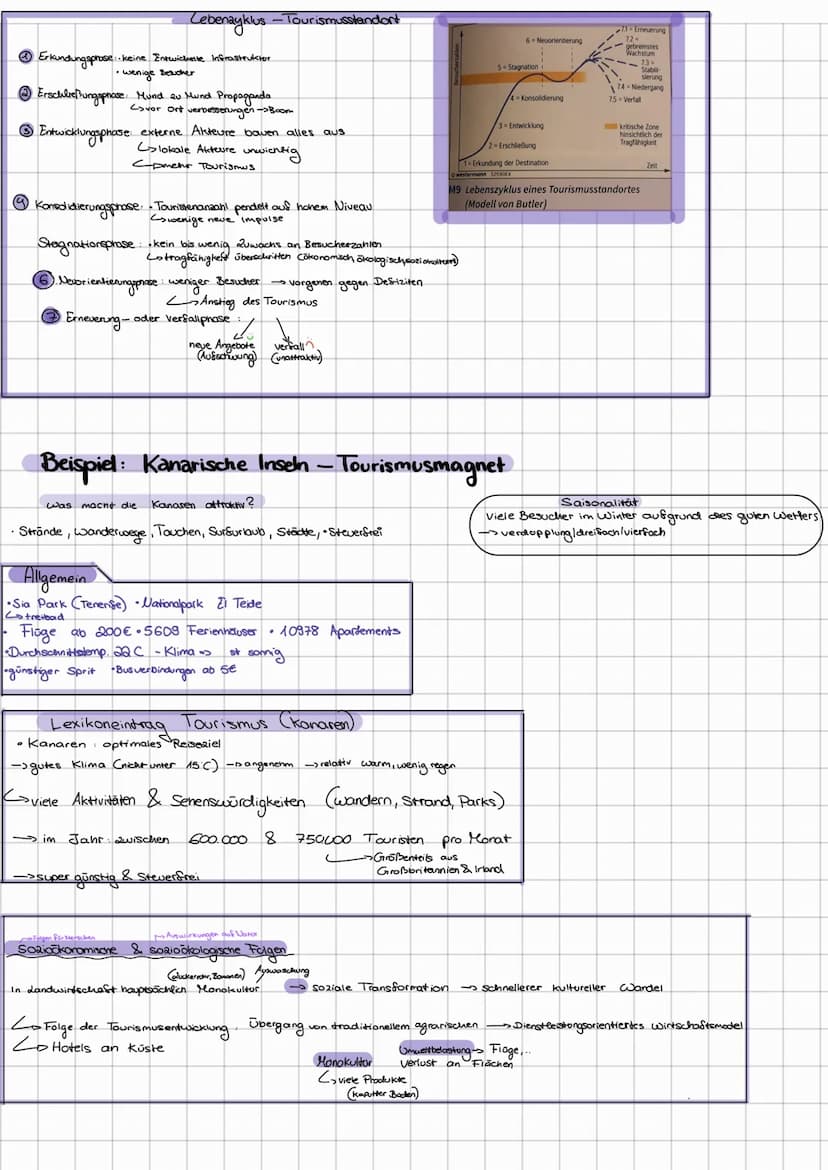 Lebenzyklus – Tourismusstandort
① Erkundungsphase: · keine Entwickelte Infrastruktur
· wenige Besucher
② Erschließungsphase: Mund zu Mund Propaganda
↳ vor Ort verbesserungen → Boom
③ Entwicklungsphase: externe Akteure bauen alles aus
↳ lokale Akteure unwichtig
↳ mehr Tourismus
④ Konsolidierungsphase: · Touristenanzahl pendelt auf hohem Niveau
↳ wenige neue Impulse
Stagnationsphase: · kein bis wenig zuwachs an Besucherzahlen
↳ tragfähigkeit überschritten (ökonomisch, ökologisch, soziokulturell)
⑥ Neuorientierungsphase: weniger Besucher → vorgehen gegen Defizite
↳ Anstieg des Tourismus
⑦ Erneuerung- oder Verfallphase:
neue Angebote verfall
(Aufschwung) (unattraktiv)
Besucherzahlen
7.1 = Erneuerung
6 = Neuorientierung
7.2 = gebremstes Wachstum
7.3 = Stabilisierung
5 = Stagnation
7.4 = Niedergang
4 = Konsolidierung
7.5 = Verfall
3 = Entwicklung
kritische Zone hinsichtlich der Tragfähigkeit
2 = Erschließung
1 = Erkundung der Destination
Zeit
© westermann
M9 Lebenszyklus eines Tourismusstandortes
(Modell von Butler)
Beispiel: Kanarische Inseln – Tourismusmagnet
Was macht die Kanaren attraktiv?
· Strände, Wanderwege, Tauchen, Surfurlaub, Städte, · Steuerfrei
Saisonalität
viele Besucher im Winter aufgrund des guten Wetters
→ verdopplung/dreifach/vierfach
Allgemein
· Sia Park (Tenerife) · Nationalpark El Teide
↳ freibad
· Flüge ab 200€ · 5609 Ferienhäuser · 10978 Apartements
· Durchschnittstemp. 22 C - Klima => ist sonnig
· günstiger Sprit · Busverbindungen ab 5€
Lexikoneintrag Tourismus (Kanaren)
· Kanaren: optimales Reiseziel
→ gutes Klima (nicht unter 15°C) → angenehm → relativ warm, wenig regen
↳ viele Aktivitäten & Sehenswürdigkeiten (wandern, Strand, Parks)
→ im Jahr: zwischen 600.000 & 750.000 Touristen pro Monat
↳ Größenteils aus
Großbritannien & Irland
→ super günstig & Steuerfrei
→ Auswirkungen auf Natur
Sozioökonomische & sozioökologische Folgen
In Landwirtschaft hauptsächlich Monokultur → soziale Transformation → schnellerer kultureller Wandel
↳ Folge der Tourismusentwicklung: Übergang von traditionellem agrarischen → Dienstleistungsorientiertes Wirtschaftsmodel
↳ Hotels an Küste
Umweltbelastung → Flüge,..
Monokultur verlust an Flächen
↳ viele Produkte
(kaputter Boden)